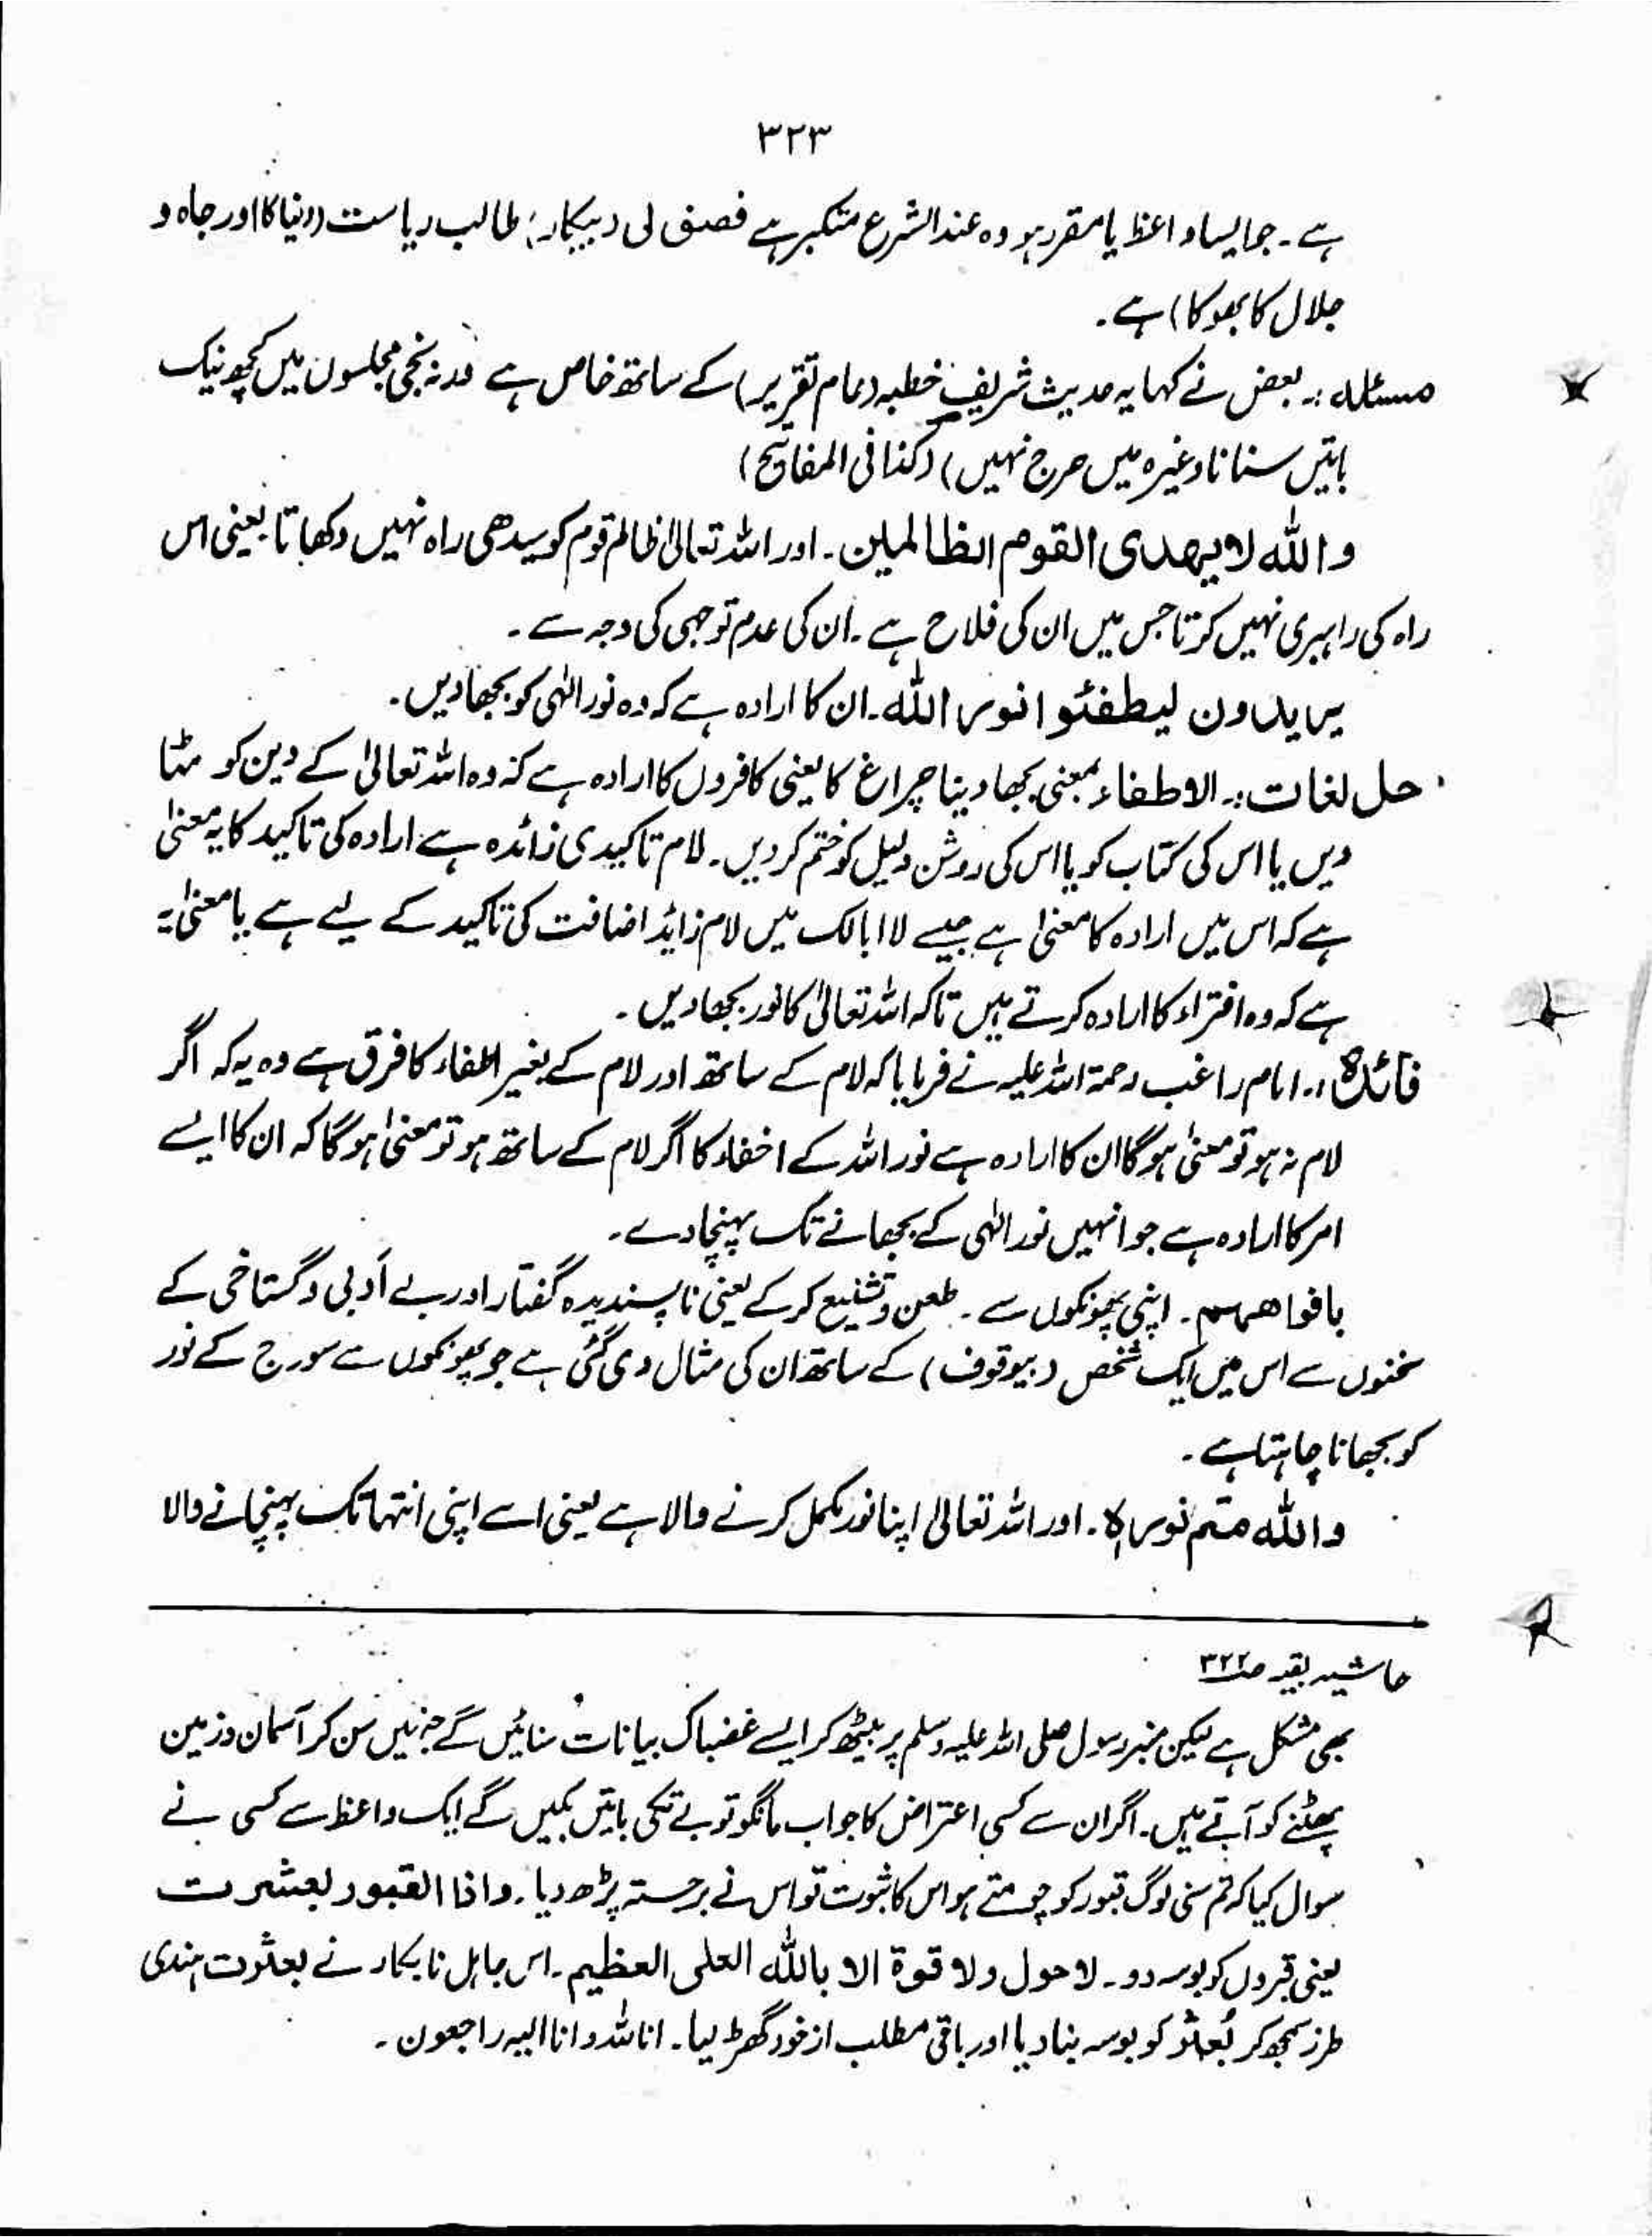 ۳۲۳
ہے۔ جو ایسا واعظ یا مقرر ہو وہ عند الشرع متکبر ہے فصنف لی (بیکار) طالب ریاست (دنیا کا اور جاہ و
جلال کا بھوکا) ہے۔
مسئلہ :۔ بعض نے کہا یہ حدیث شریف خطبہ (عام تقریر) کے ساتھ خاص ہے ورنہ نجی مجلسوں میں کچھ نیک
باتیں سنانا وغیرہ میں حرج نہیں) (کذا فی المفاتیح)
واللہ لا یھدی القوم الظالمین۔ اور اللہ تعالیٰ ظالم قوم کو سیدھی راہ نہیں دکھاتا یعنی اس
راہ کی راہبری نہیں کرتا جس میں ان کی فلاح ہے۔ ان کی عدم توجہی کی وجہ سے۔
یریدون لیطفئوا نور اللہ۔ ان کا ارادہ ہے کہ وہ نور الٰہی کو بجھادیں۔
حل لغات :۔ الاطفاء بمعنی بجھا دینا چراغ کا یعنی کافروں کا ارادہ ہے کہ وہ اللہ تعالیٰ کے دین کو مٹا
دیں یا اس کی کتاب کو یا اس کی روشن دلیل کو ختم کردیں۔ لام تاکیدی زائدہ ہے ارادہ کی تاکید کا یہ معنیٰ
ہے کہ اس میں ارادہ کا معنیٰ ہے جیسے لا ابالک میں لام زائد اضافت کی تاکید کے لیے ہے یا معنیٰ یہ
ہے کہ وہ افتراء کا ارادہ کرتے ہیں تاکہ اللہ تعالیٰ کا نور بجھادیں۔
فائدہ :۔ امام راغب رحمۃ اللہ علیہ نے فرمایا کہ لام کے ساتھ اور لام کے بغیر اطفاء کا فرق ہے وہ یہ کہ اگر
لام نہ ہو تو معنیٰ ہوگا ان کا ارادہ ہے نور اللہ کے اخفاء کا اگر لام کے ساتھ ہو تو معنیٰ ہوگا کہ ان کا ایسے
امر کا ارادہ ہے جو انہیں نور الٰہی کے بجھانے تک پہنچا دے۔
بافواھھم۔ اپنی پھونکوں سے۔ طعن و تشنیع کرکے یعنی ناپسندیدہ گفتار اور بے اَدبی و گستاخی کے
سخنوں سے اس میں ایک شخص (بیوقوف) کے ساتھ ان کی مثال دی گئی ہے جو پھونکوں سے سورج کے نور
کو بجھانا چاہتا ہے۔
واللہ متم نورہ۔ اور اللہ تعالیٰ اپنا نور مکمل کرنے والا ہے یعنی اسے اپنی انتہا تک پہنچانے والا
حاشیہ بقیہ صـ ۳۲۲
بھی مشکل ہے لیکن منبر رسول صلی اللہ علیہ وسلم پر بیٹھ کر ایسے غضباک بیانات سنائیں گے جنہیں سن کر آسمان و زمین
پھٹنے کو آتے ہیں۔ اگر ان سے کسی اعتراض کا جواب مانگو تو بے تکی باتیں بکیں گے ایک واعظ سے کسی نے
سوال کیا کہ تم سنی لوگ قبور کو چومتے ہو اس کا ثبوت تو اس نے برجستہ پڑھ دیا۔ واذا القبور بعثرت
یعنی قبروں کو بوسہ دو۔ لاحول ولا قوۃ الا باللہ العلی العظیم۔ اس جاہل نابکار نے بعثرت ہندی
طرز سمجھ کر بُعثو کو بوسہ بنا دیا اور باقی مطلب از خود گھڑ لیا۔ انا للہ وانا الیہ راجعون۔